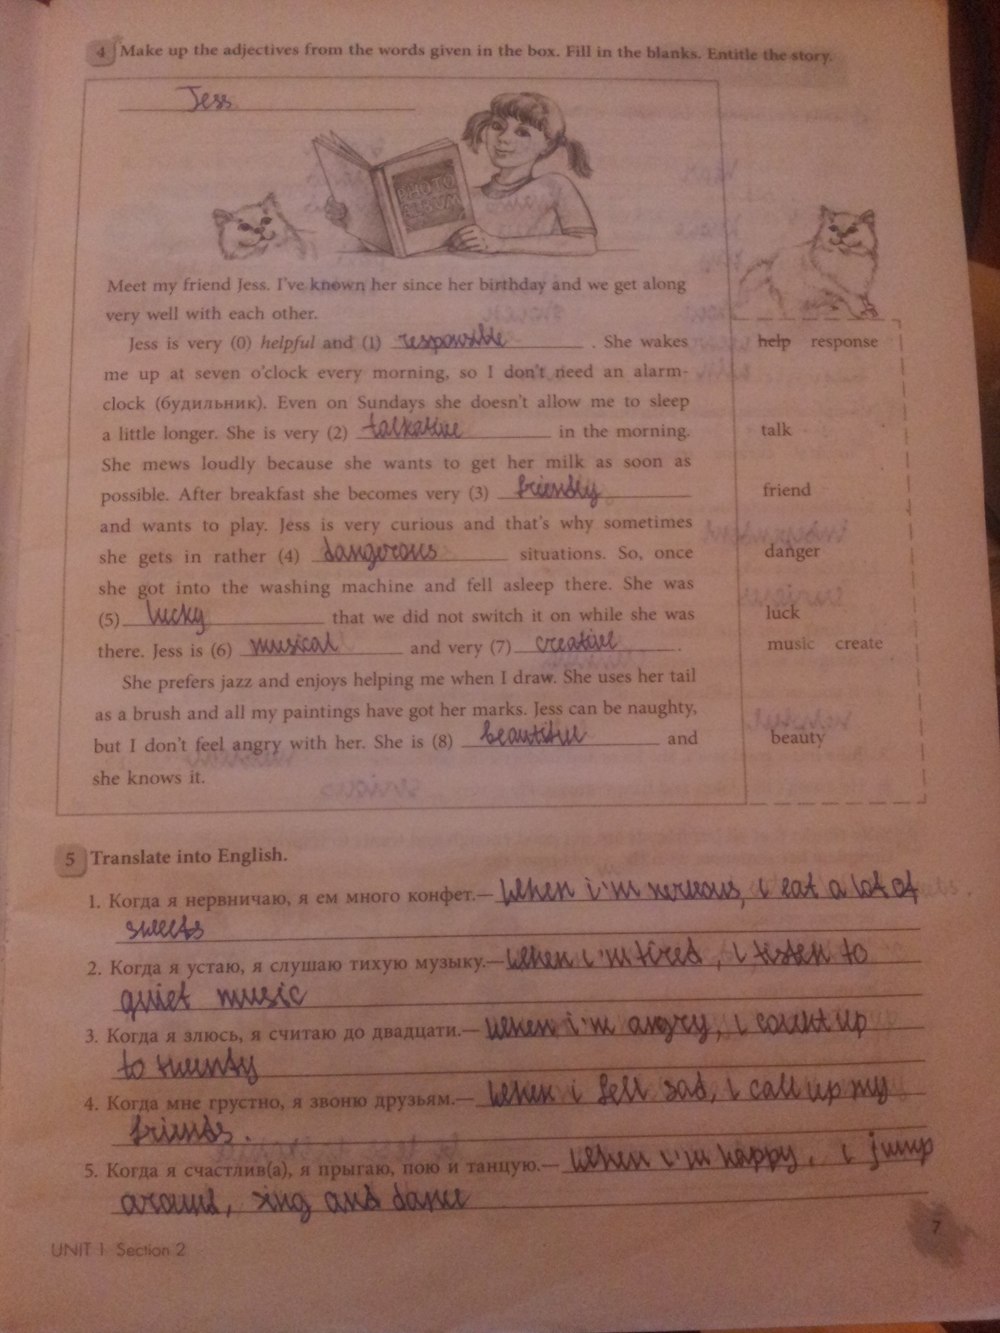 4 Make up the adjectives from the words given in the box. Fill in the blanks. Entitle the story.
Jess
PHOTO
ALBUM
Meet my friend Jess. I've known her since her birthday and we get along
very well with each other.
Jess is very (0) helpful and (1) responsible . She wakes help response
me up at seven o'clock every morning, so I don't need an alarm-
clock (будильник). Even on Sundays she doesn't allow me to sleep
a little longer. She is very (2) talkative in the morning. talk
She mews loudly because she wants to get her milk as soon as
possible. After breakfast she becomes very (3) friendly friend
and wants to play. Jess is very curious and that's why sometimes
she gets in rather (4) dangerous situations. So, once danger
she got into the washing machine and fell asleep there. She was
(5) lucky that we did not switch it on while she was luck
there. Jess is (6) musical and very (7) creative . music create
She prefers jazz and enjoys helping me when I draw. She uses her tail
as a brush and all my paintings have got her marks. Jess can be naughty,
but I don't feel angry with her. She is (8) beautiful and beauty
she knows it.
5 Translate into English.
1. Когда я нервничаю, я ем много конфет.— When i'm nervous, i eat a lot of
sweets
2. Когда я устаю, я слушаю тихую музыку.— When i'm tired, i listen to
quiet music
3. Когда я злюсь, я считаю до двадцати.— When i'm angry, i count up
to twenty
4. Когда мне грустно, я звоню друзьям.— When i fell sad, i call up my
friends.
5. Когда я счастлив(а), я прыгаю, пою и танцую.— When i'm happy, i jump
around, sing and dance
UNIT 1 Section 2
7